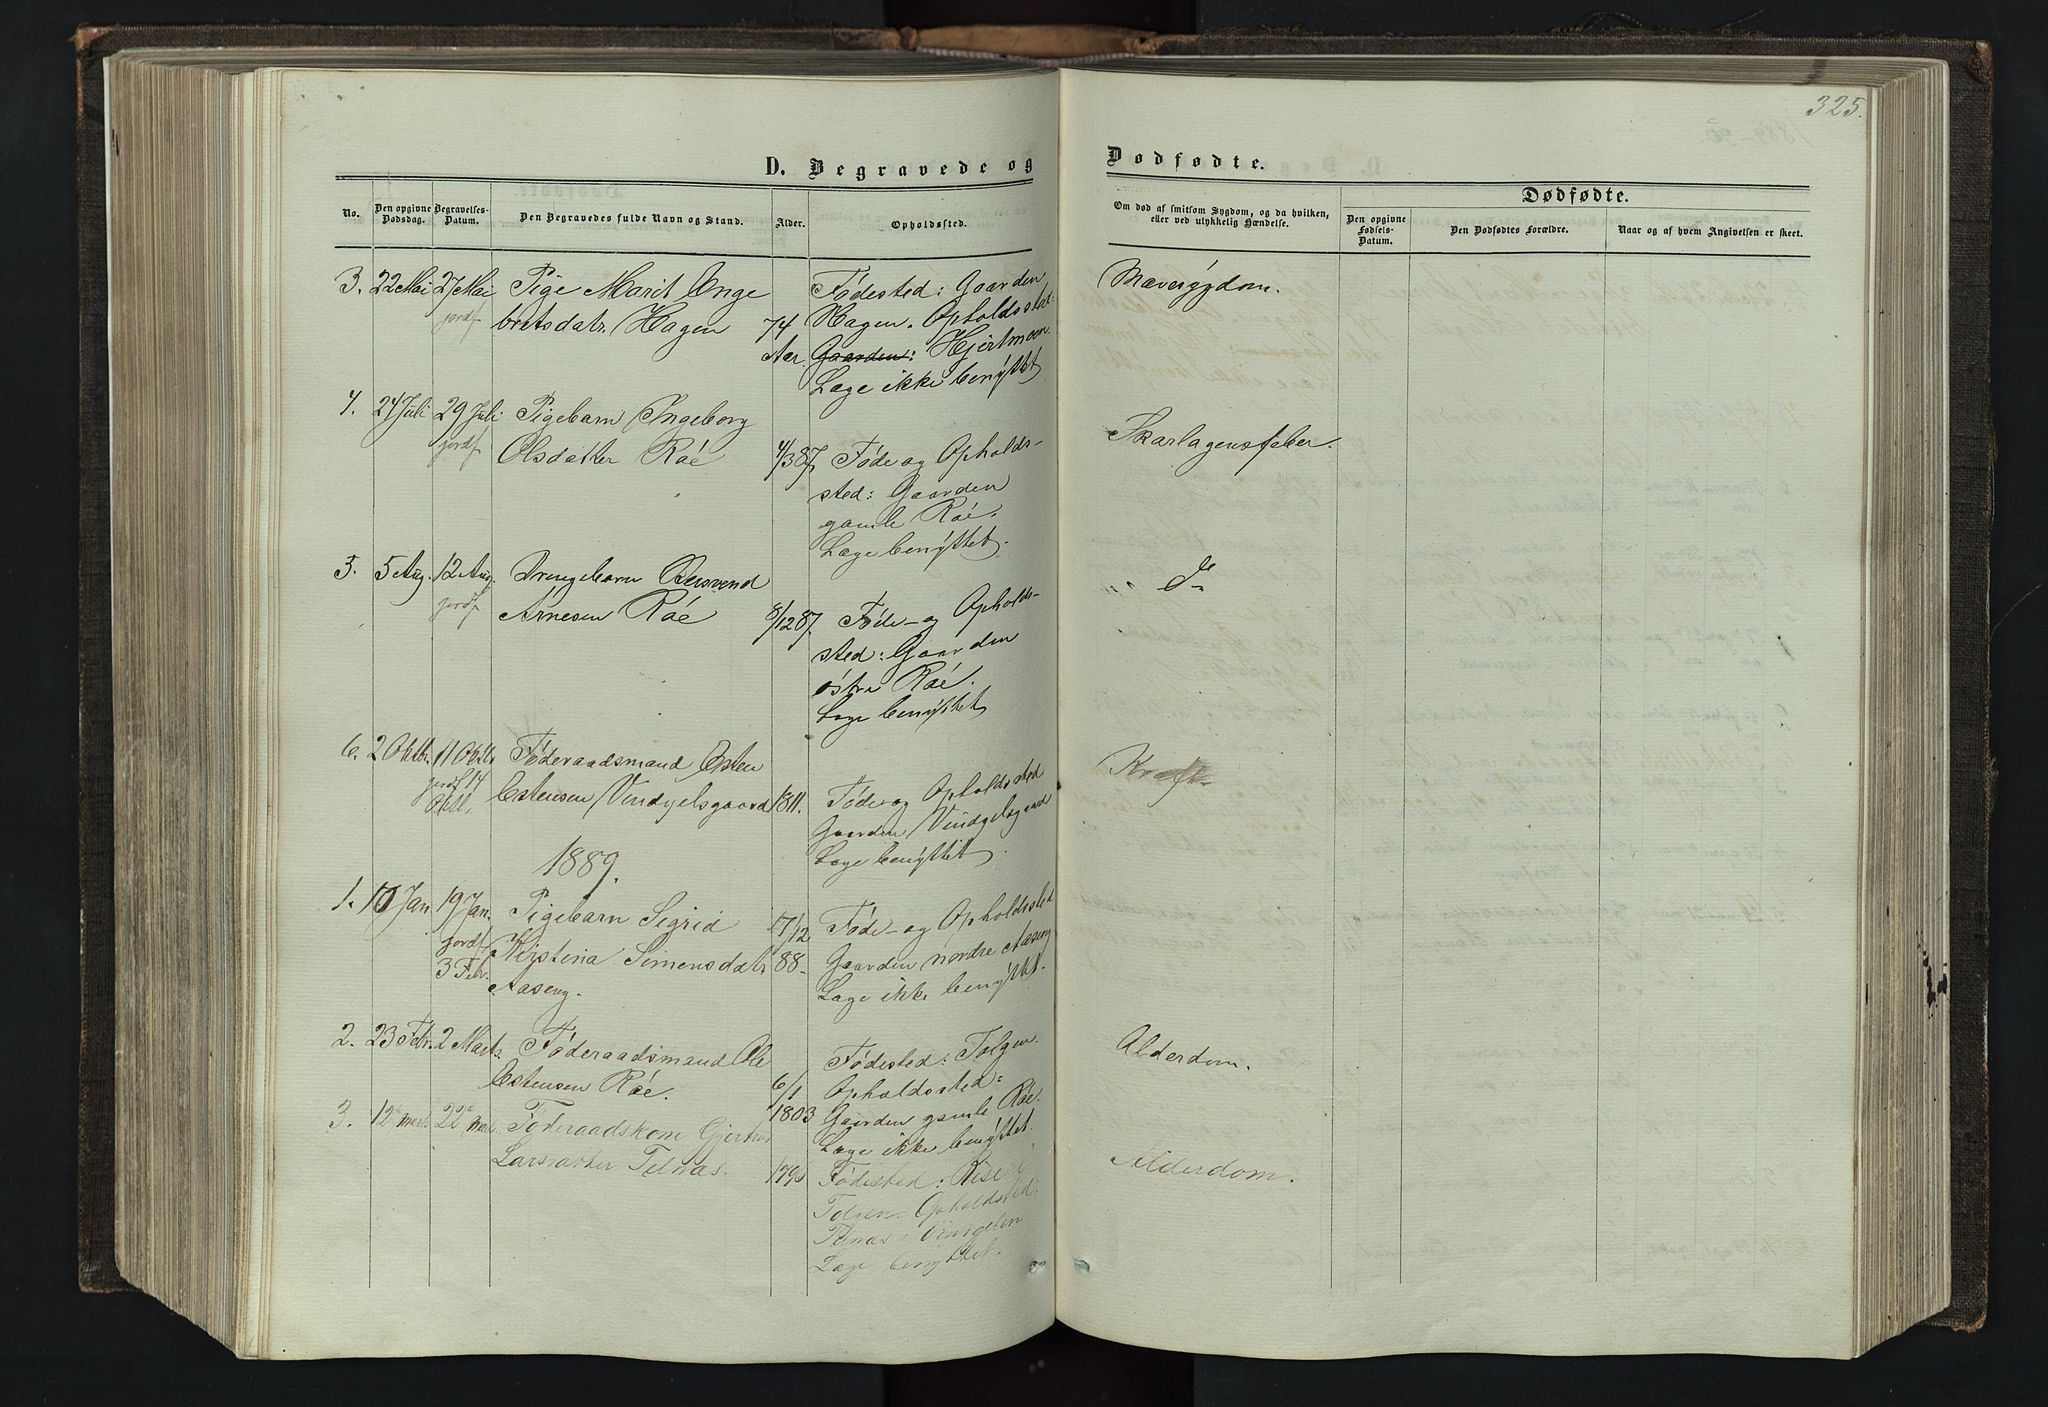 325.
D. Begravede og
Dødfødte.
No.
Den opgivne Dødsdag.
Begravelses-Datum.
Den Begravedes fulde Navn og Stand.
Alder.
Opholdssted.
Om død af smitsom Sygdom, og da hvilken,
eller ved ulykkelig Hændelse.
Dødfødte.
Den opgivne Fødsels-Datum.
Den Dødfødtes Forældre.
Naar og af hvem Angivelsen er skeet.
3. 22 Mai 27 Mai Pige Marit Enge
jordf. bretsdatr. Hagen 74
Aar.
Fødested: Gaarden
Hagen. Opholdssted:
Gaarden: Hjertmoen
Læge ikke benyttet
Mavesygdom.
4. 24 Juli 29 Juli Pigebarn Ingeborg
jordf. Olsdatter Røe 4/3 87. Føde og Opholds-
sted: Gaarden
gamle Røe.
Læge benyttet.
Skarlagensfeber.
5. 5 Aug. 12 Aug. Drengebarn
jordf. Arnesen Røe 8/12 87. Føde- og Opholds-
sted: Gaarden
østre Røe.
Læge benyttet
Do
6. 2 Oktbr. 11 Oktb. Føderaadsmand Esten
jordf. 14 Oktb. Estensen Vindgelsgaard 1811. Føde og Opholdssted
Gaarden Vindgelsgaard
Læge benyttet
Kræft
1889.
1. 10 Jan. 19 Jan. Pigebarn Sigrid 17/12 Føde- og Opholdssted
jordf. 3 Febr. Kirstina Simensdatr. 88- Gaarden nordre Aaseng
Aaseng. Læge ikke benyttet.
2. 23 Febr. 2 Marts Føderaadsmand Ole
Estensen Røe. 6/1
1803
Fødested: Tolgen.
Opholdssted:
Gaarden gamle Røe.
Læge ikke benyttet.
Alderdom.
3. 12te marts 22de marts. Føderaadskone Gjertrud
Larsdatter Telnæs. 1796 Fødested: Rise i
Tolgen. Opholdssted:
Telnæs i Vingelen
Læge benyttet.
Alderdom.